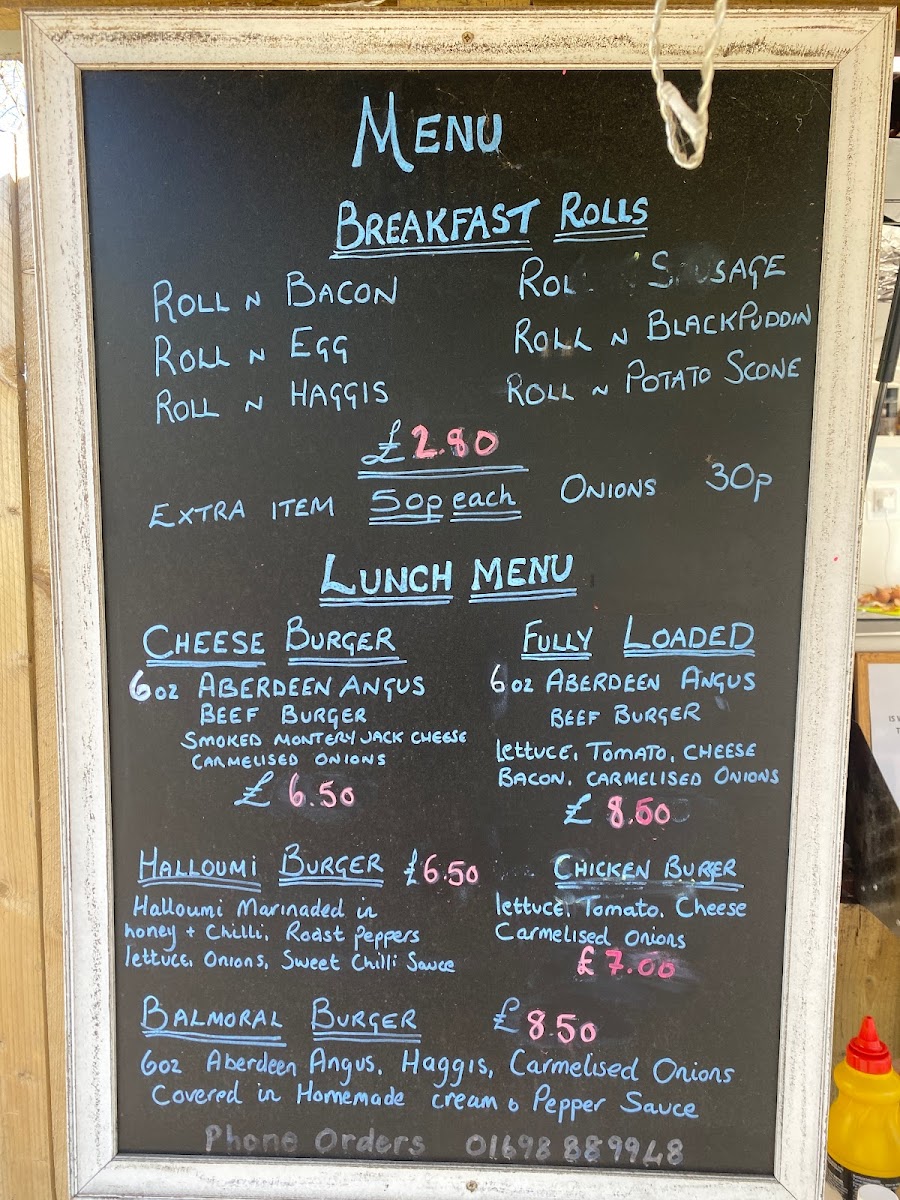 MENU
BREAKFAST ROLLS
ROLL N BACON
ROLL N EGG
ROLL N HAGGIS
ROL SAUSAGE
ROLL N BLACKPUDDIN
ROLL N POTATO SCONE
£2.80
EXTRA ITEM 50p each ONIONS 30p
LUNCH MENU
CHEESE BURGER
6oz ABERDEEN ANGUS
BEEF BURGER
SMOKED MONTERY JACK CHEESE
CARMELISED ONIONS
£6.50
FULLY LOADED
6oz ABERDEEN ANGUS
BEEF BURGER
lettuce, TOMATO, CHEESE
BACON. CARMELISED ONIONS
£ 8.50
HALLOUMI BURGER £6.50
Halloumi Marinaded in
honey + Chilli, Roast Peppers
lettuce, Onions, Sweet Chilli Sauce
CHICKEN BURGER
lettuce, Tomato. Cheese
Carmelised Onions
£7.00
BALMORAL BURGER £8.50
6oz Aberdeen Angus. Haggis, Carmelised Onions
Covered in Homemade cream & Pepper Sauce
Phone Orders 01698 889948